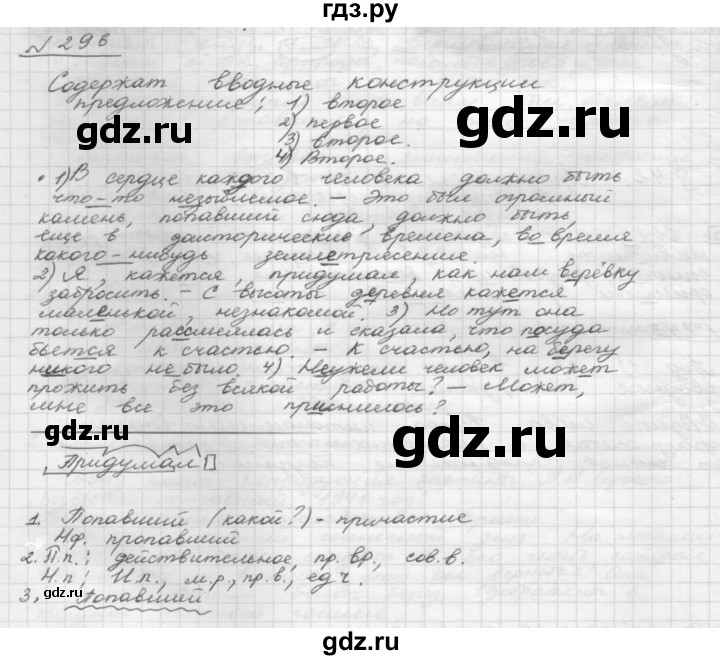 гдз.ру
№ 296
Содержат вводные конструкции
предложение; 1) второе
2) первое
3) второе.
4) Второе.
• 1) В сердце каждого человека должно быть
что-то незыблемое. – Это был огромный
камень, попавший сюда, должно быть,
еще в доисторические времена, во время
какого-нибудь землетрясения.
2) Я, кажется, придумал, как нам верёвку
забросить. – С высоты деревня кажется
маленькой, незнакомой. 3) Но тут она
только рассмеялась и сказала, что посуда
бьется к счастью. – К счастью, на берегу
никого не было. 4) Неужели человек может
прожить без всякой работы? – Может,
мне все это приснилось?
Придумал
1. Попавший (какой?) – причастие
Н.ф. пропавший
2. П.п.; действительное, пр. вр., сов. в.
Н.п; И.п., м.р., пр.в., ед ч.
3, Попавший
gdz.ru
gdz.ru
gdz.ru
gdz.ru
gdz.ru
gdz.ru
gdz.ru
gdz.ru